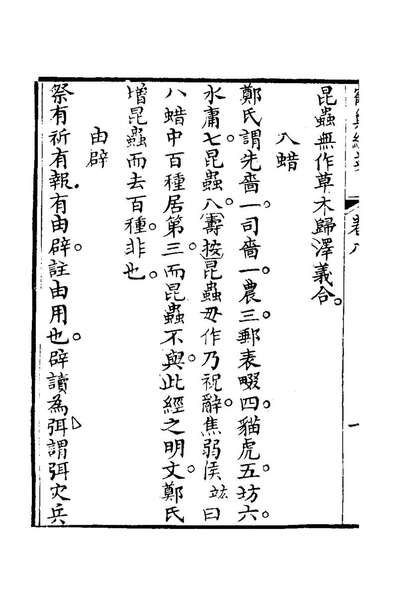 昆蟲無作草木歸澤義合。
八蜡
鄭氏謂先嗇一。司嗇一。農三。郵表畷四。貓虎五。坊六。
水庸七。昆蟲八。壽按昆蟲毋作乃祝辭。焦弱侯竑曰
八蜡中百種居第三。而昆蟲不與。此經之明文。鄭氏
增昆蟲而去百種。非也。
由辟
祭有祈有報。有由辟。註由用也。辟讀為弭。謂弭灾兵